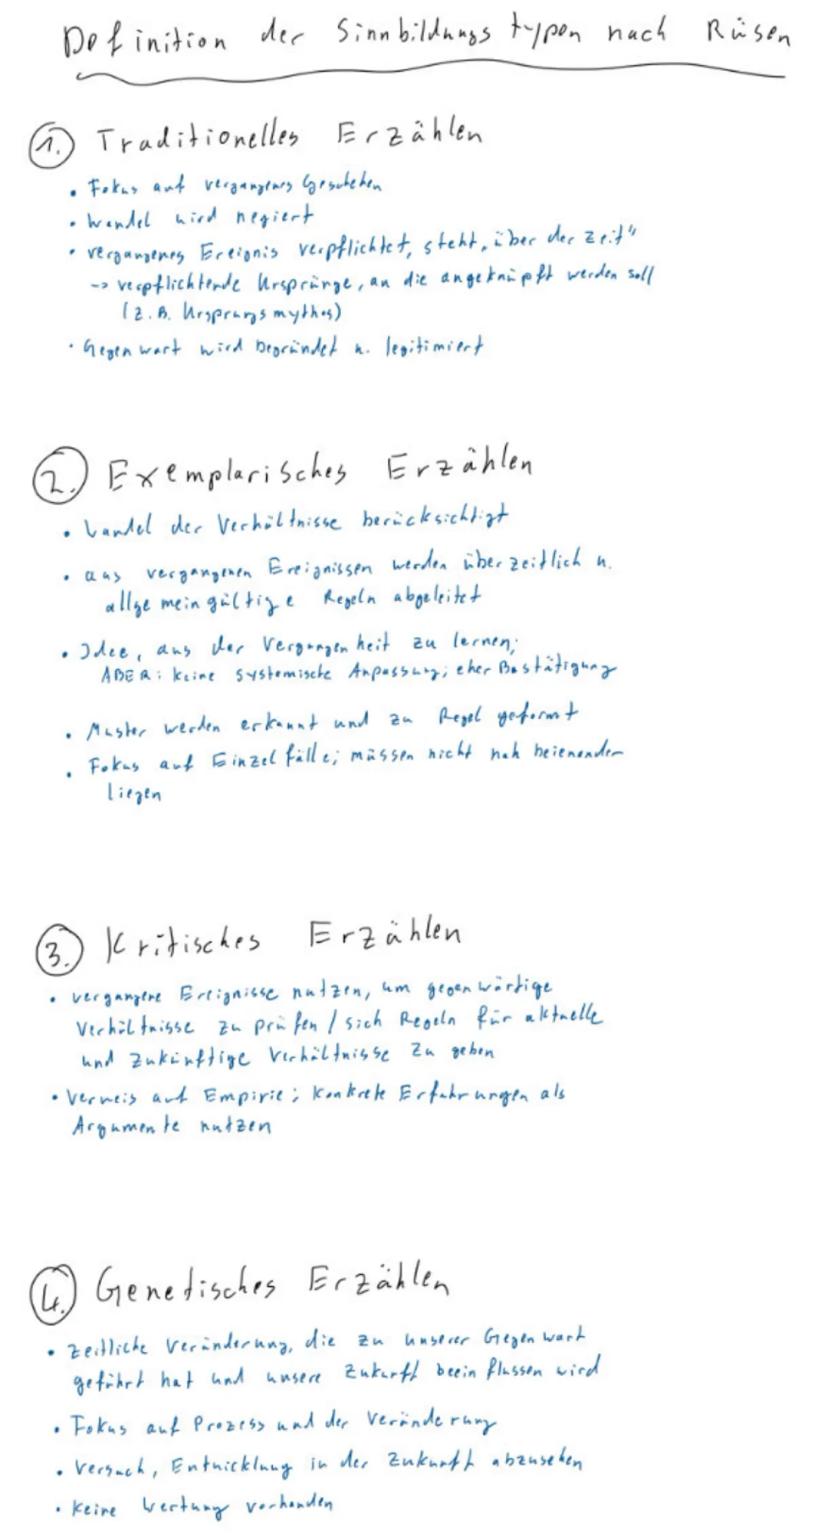 Definition der Sinnbildungstypen nach Rüsen
1. Traditionelles Erzählen
• Fokus auf vergangenes Geschehen
• Wandel wird negiert
• vergangenes Ereignis verpflichtet, steht „über der Zeit"
-> verpflichtende Ursprünge, an die angeknüpft werden soll
(z.B. Ursprungsmythos)
• Gegenwart wird begründet u. legitimiert
2. Exemplarisches Erzählen
• Wandel der Verhältnisse berücksichtigt
• aus vergangenen Ereignissen werden überzeitlich u.
allgemeingültige Regeln abgeleitet
• Idee, aus der Vergangenheit zu lernen;
ABER: keine systemische Anpassung; eher Bestätigung
• Muster werden erkannt und zu Regel geformt
• Fokus auf Einzelfälle; müssen nicht nah beienander
liegen
3. Kritisches Erzählen
• vergangene Ereignisse nutzen, um gegenwärtige
Verhältnisse zu prüfen / sich Regeln für aktuelle
und zukünftige Verhältnisse zu geben
• Verweis auf Empirie; konkrete Erfahrungen als
Argumente nutzen
4. Genetisches Erzählen
• zeitliche Veränderung, die zu unserer Gegenwart
geführt hat und unsere Zukunft beeinflussen wird
• Fokus auf Prozess und der Veränderung
• Versuch, Entwicklung in der Zukunft abzusehen
• keine Wertung vorhanden